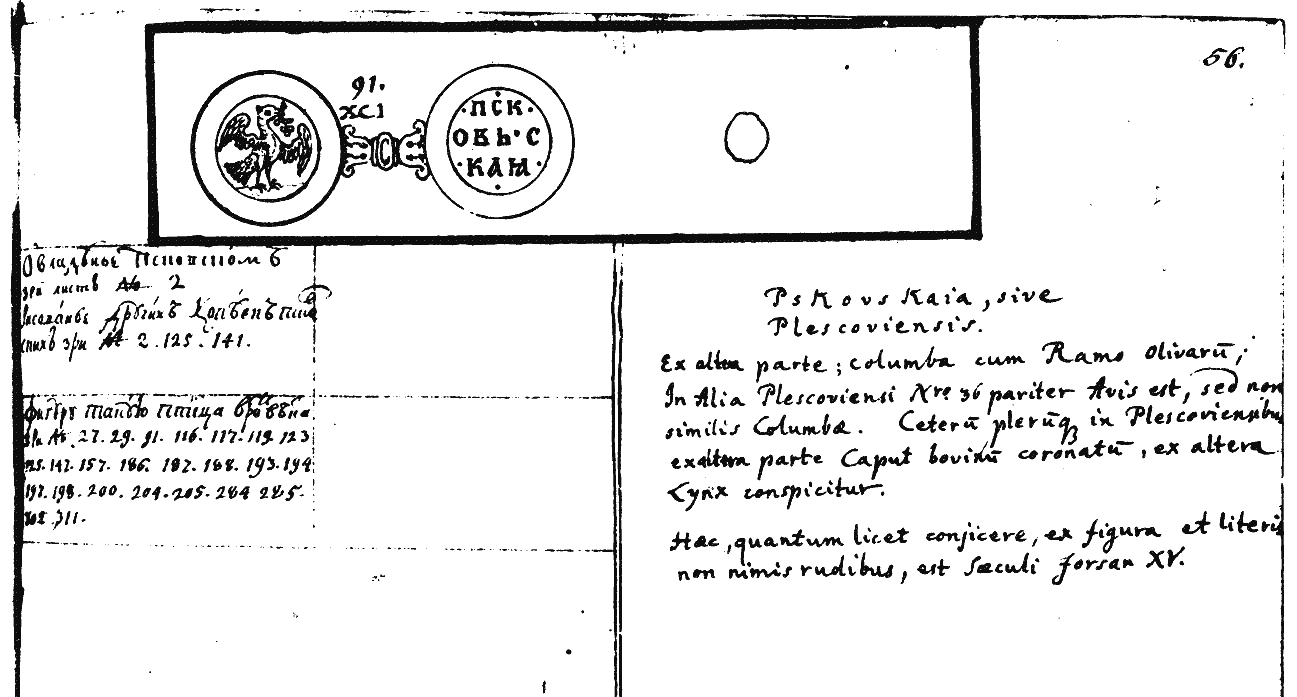 56.
91.
XCI
·ПСК·
ОВЬ·С
·КАꙖ·
зри листъ № 2
зри № 2.125.141.
Птица
зри № 27. 29. 91. 116. 117. 119. 123
125. 147. 157. 186. 187. 188. 193. 194
197. 198. 200. 204. 205. 284 285.
302. 311.
Pskovskaia, sive
Plescoviensis.
Ex altera parte; Columba cum Ramo Olivarū;
In Alia Plescoviensi Nrº 36 pariter Avis est, sed non
similis Columbæ. Ceterū plerūq in Plescoviensibus
ex altera parte Caput bovinū coronatū, ex altera
Lynx conspicitur.
Hæc, quantum licet conjicere, ex figura et literis
non nimis rudibus, est Sæculi forsan XV.